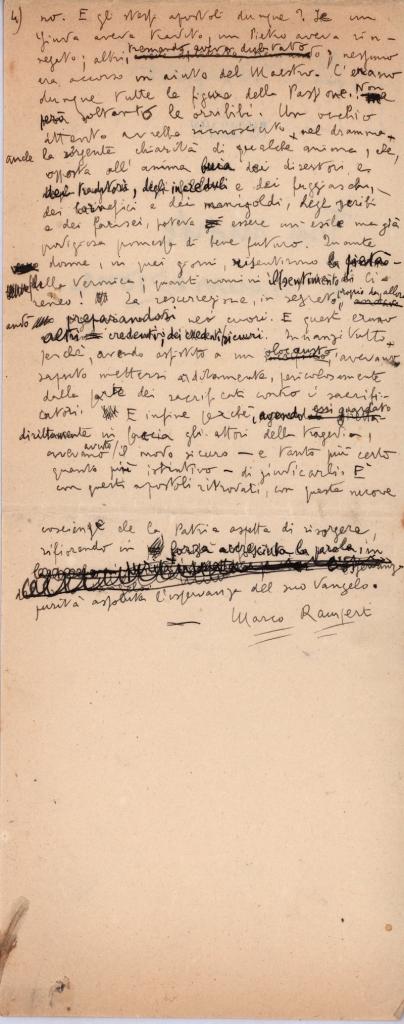 4) no. E gli stessi apostoli dunque? Se un
Giuda aveva tradito, un Pietro aveva rin-
negato; altri, tremando, aveva dubitato; nessuno
era accorso in aiuto del Maestro. C'erano
dunque tutte le figure della Passione. Non
però soltanto le orribili. Un occhio
attento avrebbe riconosciuto, nel dramma,
anche la sorgente chiarità di qualche anima, che,
opposta all'anima buia dei disertori e
dei traditori, degli increduli e dei fuggiaschi,
dei carnefici e dei manigoldi, degli scribi
e dei farisei, poteva essere un esile ma già
prodigiosa promessa di bene futuro. Quante
donne, in quei giorni, risentirono la pietà
della Veronica; quanti uomini il sentimento di Ci-
reneo! La resurrezione, in segreto, proprio da allora
andò preparandosi nei cuori. E questi erano
altri credenti, dei credenti sicuri. Innanzi tutto
perché, avendo assistito a un olocausto, avevano
saputo mettersi arditamente, pericolosamente
dalla parte dei sacrificati contro i sacrifi-
catori. E infine perché, avendo essi guardato
direttamente in faccia gli attori della tragedia,
avevano avuto il modo sicuro – e tanto più certo
quanto più istintivo – di giudicarli. È
con questi apostoli ritrovati, con queste nuove
coscienze che la Patria aspetta di risorgere,
rifiorendo in forza accresciuta la parola, in
purità assoluta l'osservanza del suo Vangelo.
Marco Ramperti